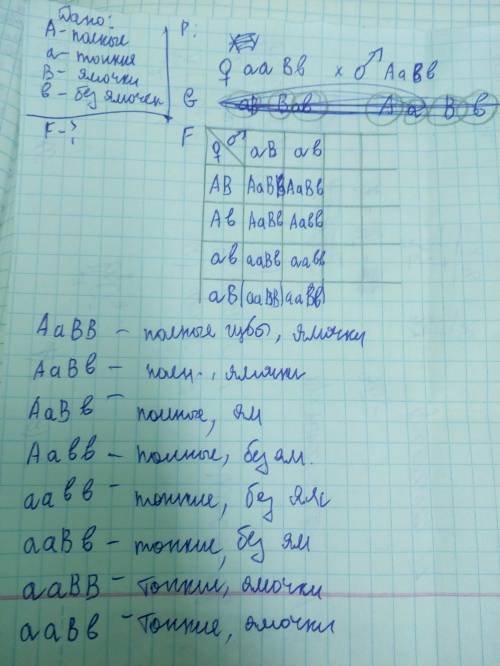 Дано:
А- полные
а- тонкие
В- ямочки
в- без ямочек
F-?
P:
♀ aaBb x ♂ AaBb
G
aB Bab A a B b
F
♀ ♂ aB ab
AB AaBB AaBb
Ab AaBb Aabb
ab aaBb aabb
aB aaBB aaBb
AaBB - полные губы, ямочки
AaBb - полн., ямочки
AaBb - полные, ям
Aabb - полные, без ям.
aabb - тонкие, без ям
aaBb - тонкие, без ям
aaBB - тонкие, ямочки
aaBb - тонкие, ямочки